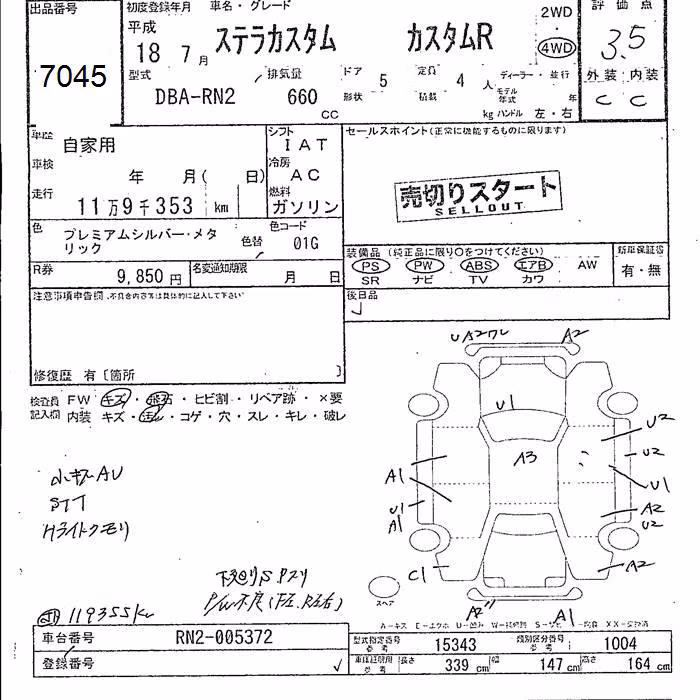 出品番号 初度登録年月 車名・グレード 2WD 評価点
平成 18年7月 ステラカスタム カスタムR 4WD 3.5
7045
型式 排気量 ドア形状 5 定員 4人 ディーラー・並行 外装 内装
DBA-RN2 660 CC 積載 kg モデル年式 年 ハンドル 左・右 C C
車歴 自家用 シフト IAT セールスポイント(正常に機能するものに限ります)
車検 年 月( 日) 冷房 AC
走行 11万9千353 km 燃料 ガソリン
売切りスタート
SELLOUT
色 プレミアムシルバー・メタリック 色替 色コード 01G
装備品 (純正品に限り○をつけてください) 新車保証書
PS PW ABS エアB AW 有・無
SR ナビ TV カワ
R券 9,850円 名変通知期限 月 日
後日品
注意事項申告欄
修復歴 有〔箇所 〕
検査員記入欄 FW キズ・飛石・ヒビ割・リペア跡・×要
内装 キズ・汚れ・コゲ・穴・スレ・キレ・破レ
A2
U1
U2
A3
U2
A1
U1
U1
A1
A2
U2
C1
A2
スペア
A1
小キズAU
STT
Hライトクモリ
下廻りS
119355km
車台番号 RN2-005372
登録番号
型式指定番号 参考 15343 類別区分番号 参考 1004
長さ 339cm 幅 147cm 高さ 164cm